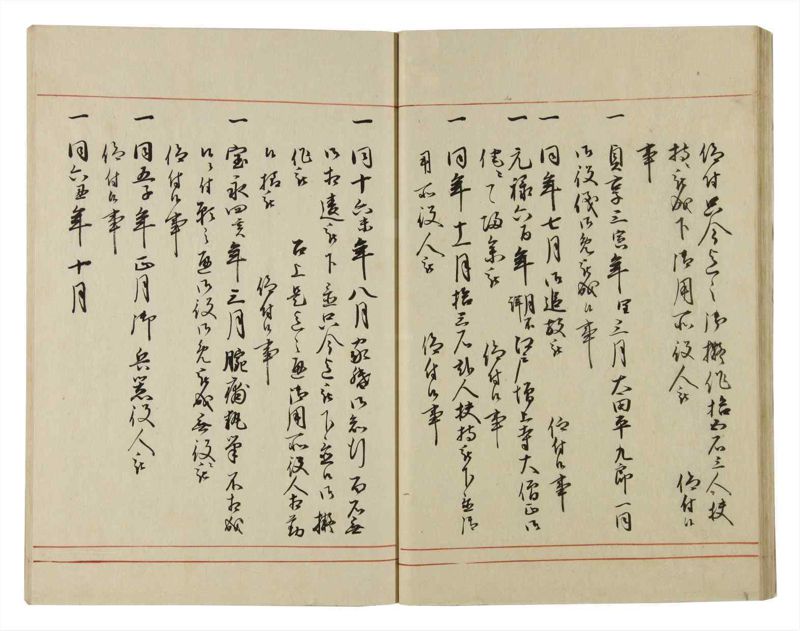 仰付只今迄之御擬作拾五石三人扶
持被成下御用所役人被 仰付候
事
一 貞享三寅年閏三月太田平九郎一同
御役儀御免被成候事
一 同年七月御追放被 仰付候事
一 元禄六酉年 月不詳 江戸増上寺大僧正御
侘ニ而帰参被 仰付候事
一 同年十一月拾三石弐人扶持被下置御
用所役人被 仰付候事
一 同十六未年八月家督御知行百石無
御相違被下置只今迄被下置候御擬
作被
召揚 右上是迄之通御用所役人相勤
候様被 仰付候事
一 宝永四亥年三月腕痛執筆不相成
候ニ付願之通御役御免被成無役被
仰付候事
一 同五子年正月御兵器役人被
仰付候事
一 同六丑年十月